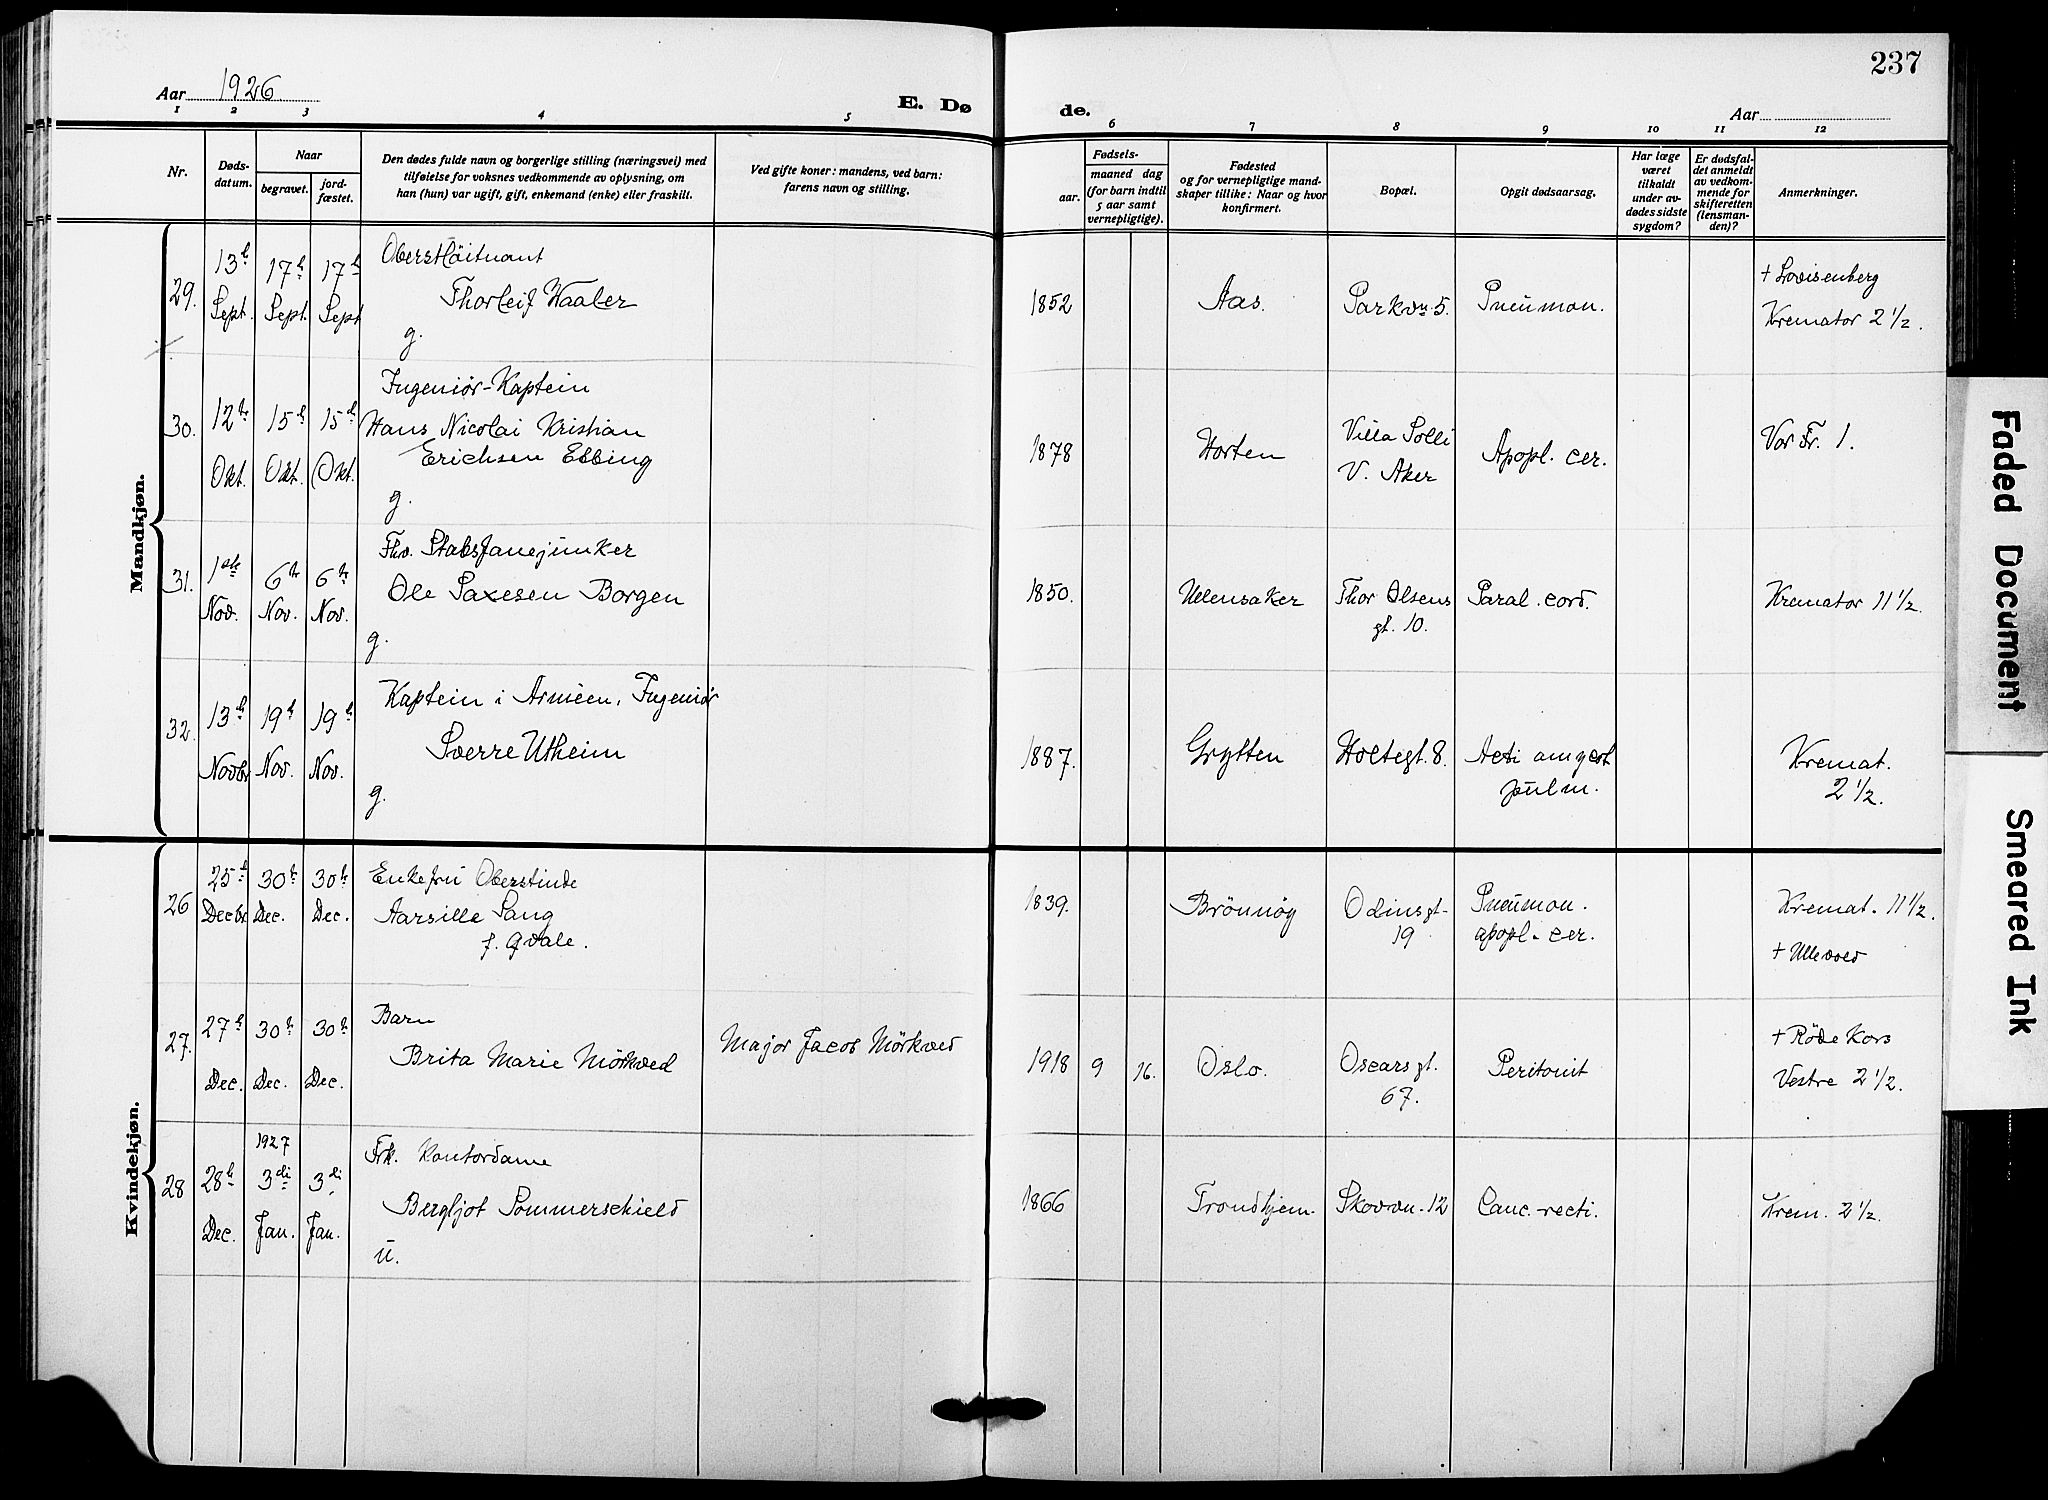 237
Aar 1926
E. Dø de.
Aar
1 2 3 4 5 6 7 8 9 10 11 12
Nr.
Døds-
datum.
Naar
begravet.
jord-
fæstet.
Den dødes fulde navn og borgerlige stilling (næringsvei) med
tilføielse for voksnes vedkommende av oplysning, om
han (hun) var ugift, gift, enkemand (enke) eller fraskilt.
Ved gifte koner: mandens, ved barn:
farens navn og stilling.
Fødsels-
aar.
maaned dag
(for barn indtil
5 aar samt
vernepligtige).
Fødested
og for vernepligtige mand-
skaper tillike: Naar og hvor
konfirmert.
Bopæl.
Opgit dødsaarsag.
Har læge
været
tilkaldt
under av-
dødes sidste
sygdom?
Er dødsfal-
det anmeldt
av vedkom-
mende for
skifteretten
(lensman-
den)?
Anmerkninger.
Mandkjøn.
29.
13de
Sept.
17de
Sept.
17de
Sept
Oberstløitnant
Thorleif Waaler
g.
1852
Aas.
Parkvn. 5.
Pneumon.
+ Lovisenberg
Kremator 2 1/2.
30.
12te
Okt.
15de
Okt.
15de
Okt.
Ingeniør-Kaptein
Hans Nicolai Kristian
Erichsen Ebbing
g.
1878
Horten
Villa Solli
V. Aker
Apopl. cer.
Vor Fr. 1.
31.
1ste
Nov.
6te
Nov.
6te
Nov.
Fhv. Stabsfanejunker
Ole Saxesen Borgen
g.
1850.
Ullensaker
Thor Olsens
gt. 10.
Paral. cord.
Kremator 11 1/2.
32.
13de
Novbr
19de
Nov.
19de
Nov.
Kaptein i Armeen, Ingeniør
Sverre Utheim
g.
1887.
Grytten
Holtegt. 8.
pulm.
Kremat.
2 1/2.
Kvindekjøn.
26
25de
Decbr.
30te
Dec.
30te
Dec.
Enkefru Oberstinde
Aarsille Sang
f. Qvale.
1839.
Brönnöy
Odinsgt.
19
Pneumon.
apopl. cer.
Kremat. 11 1/2.
+ Ullevold
27.
27de
Dec.
30te
Dec.
30te
Dec.
Barn
Brita Marie Mörkved
Major Jacob Mörkved
1918 9 16.
Oslo.
Oscarsgt.
67.
Peritonit
+ Röde Kors
Vestre 2 1/2.
28
28de
Dec.
1927
3die
Jan.
3die
Jan.
Frk. Kontordame
Bergljot Sommerschield
u.
1866
Trondhjem.
Skovvn. 12
Canc. recti.
Krem. 2 1/2.
Faded Document
Smeared Ink